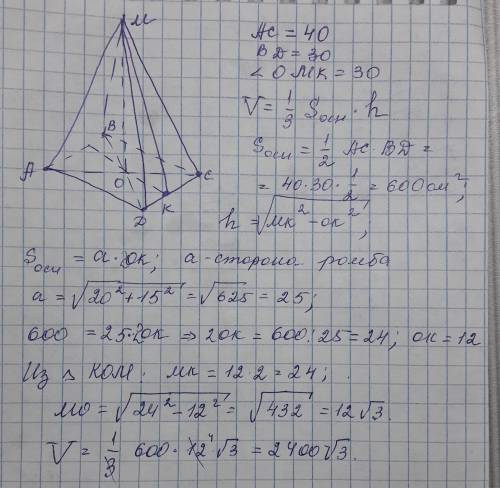 M
B
A
O
C
K
D
AC = 40
BD = 30
∠OMK = 30
V = 1/3 Sосн · h
Sосн = 1/2 AC · BD =
= 40 · 30 · 1/2 = 600 см²;
h = √(MK² - OK²);
Sосн = a · 2OK; a - сторона ромба
a = √(20² + 15²) = √625 = 25;
600 = 25 · 2OK ⇒ 2OK = 600 : 25 = 24; OK = 12
Из △ KOM: MK = 12 · 2 = 24;
MO = √(24² - 12²) = √432 = 12√3.
V = 1/3 600 · 12 4 √3 = 2400√3.